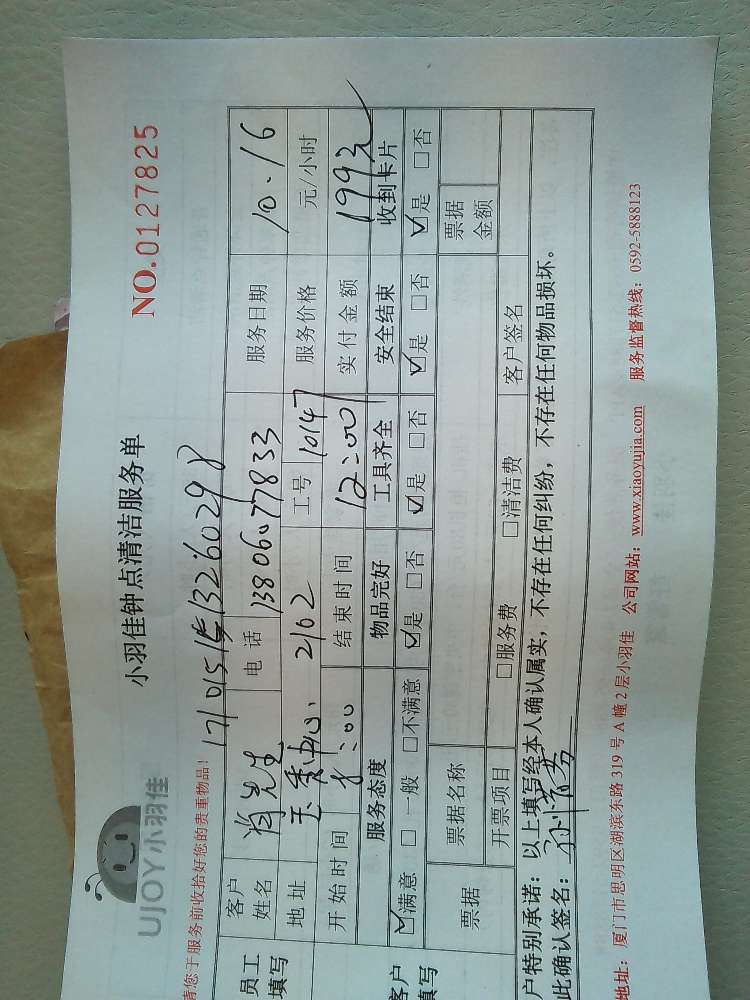 UJOY小羽佳
小羽佳钟点清洁服务单
NO.0127825
请您于服务前收拾好您的贵重物品!
员工填写
客户姓名 肖先生 电话 13806077833 服务日期 10.16
地址 2102 工号 10147 服务价格 元/小时
开始时间 8:00 结束时间 12:00 实付金额 199元
客户填写
服务态度 物品完好 工具齐全 安全结束 收到卡片
☑满意 □一般 □不满意 ☑是 □否 ☑是 □否 ☑是 □否 ☑是 □否
票据 票据名称 票据金额
开票项目 □服务费 □清洁费 客户签名
户特别承诺:以上填写经本人确认属实,不存在任何纠纷,不存在任何物品损坏。
此确认签名:
地址:厦门市思明区湖滨东路 319 号 A 幢 2 层小羽佳 公司网站:www.xiaoyujia.com 服务监督热线:0592-5888123